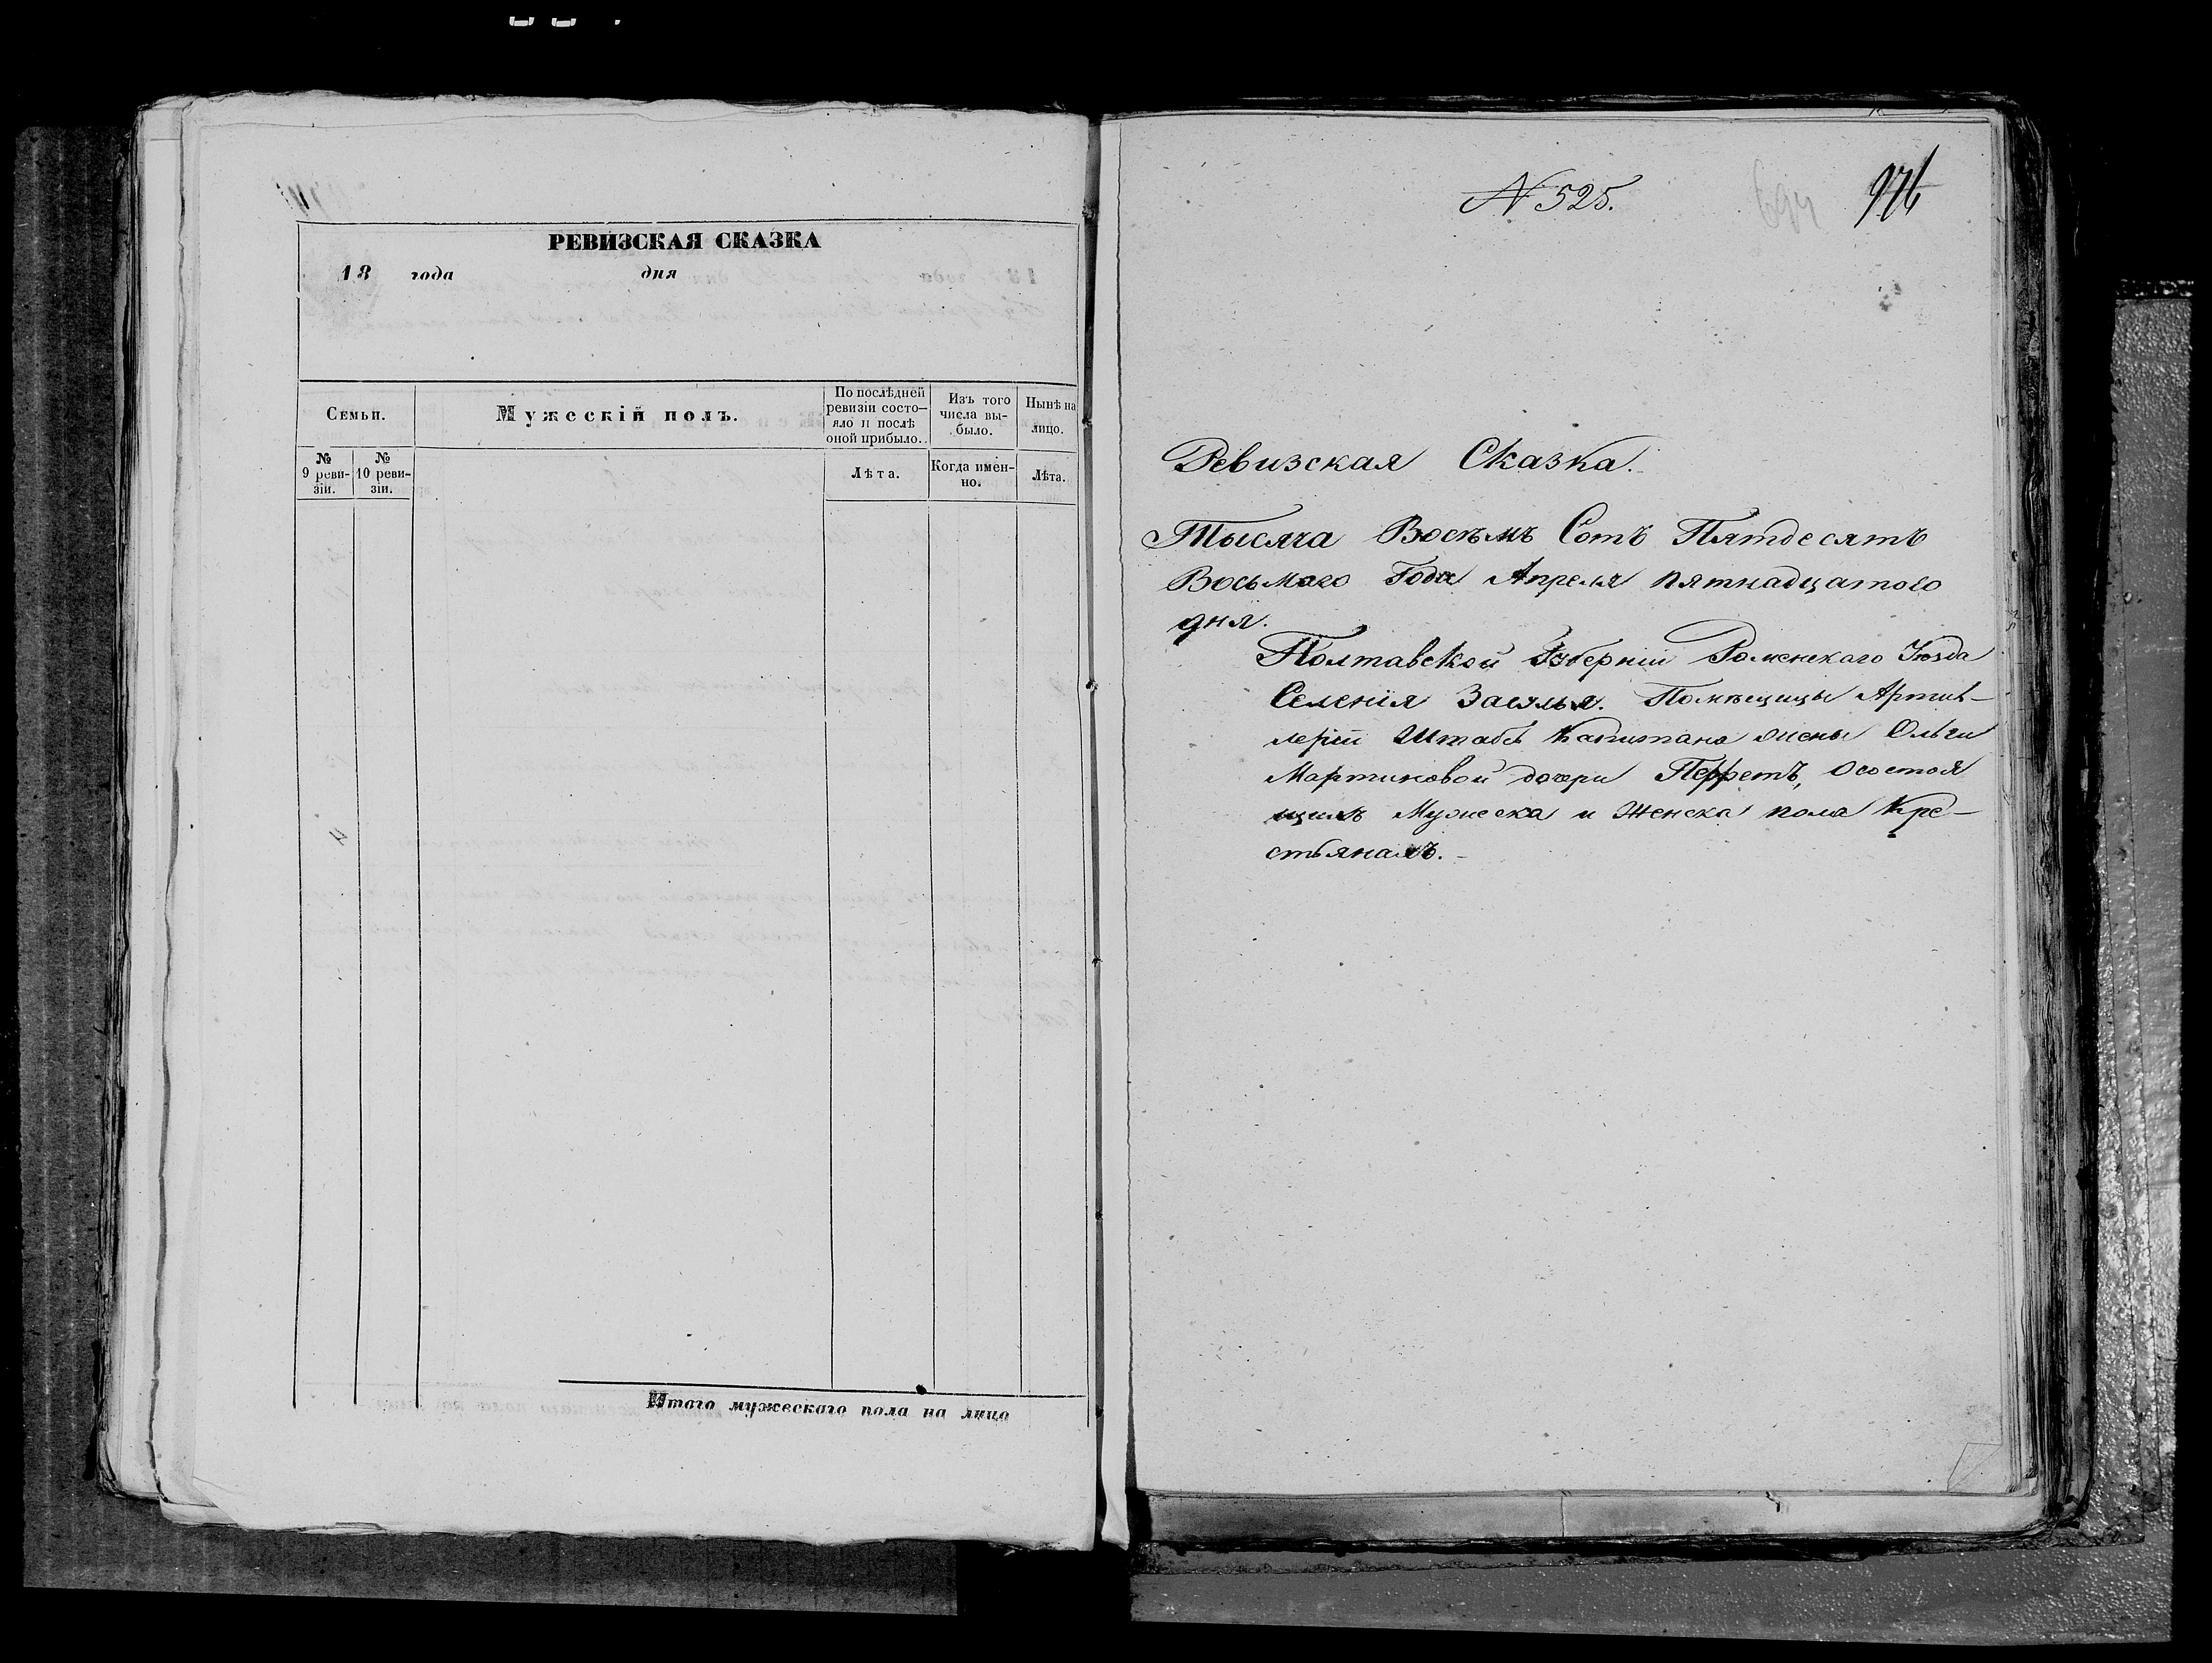 РЕВИЗСКАЯ СКАЗКА
18 года дня
Семьи.
Мужескій полъ.
По послѣдней
ревизіи состо-
яло и послѣ
оной прибыло.
Изъ того
числа вы-
было.
Нынѣ на
лицо.
№
9 реви-
зіи.
№
10 реви-
зіи.
Лѣта.
Когда имен-
но.
Лѣта.
Итого мужескаго пола на лицо
N 525.
694
976
Ревизская Сказка.
Тысяча Восѣмъ Сотъ Пятдесятъ
Восьмаго Года Апреля пятнадцатого
дня.
Полтавской Губерніи Роменскаго Уѣзда
Селенія Засулья. Помѣщицы Артил-
леріи Штабс Капитана жены Ольги
Мартиновой дочери Перретъ, о состоя
щихъ Мужеска и Женска пола Кре-
стьянахъ.